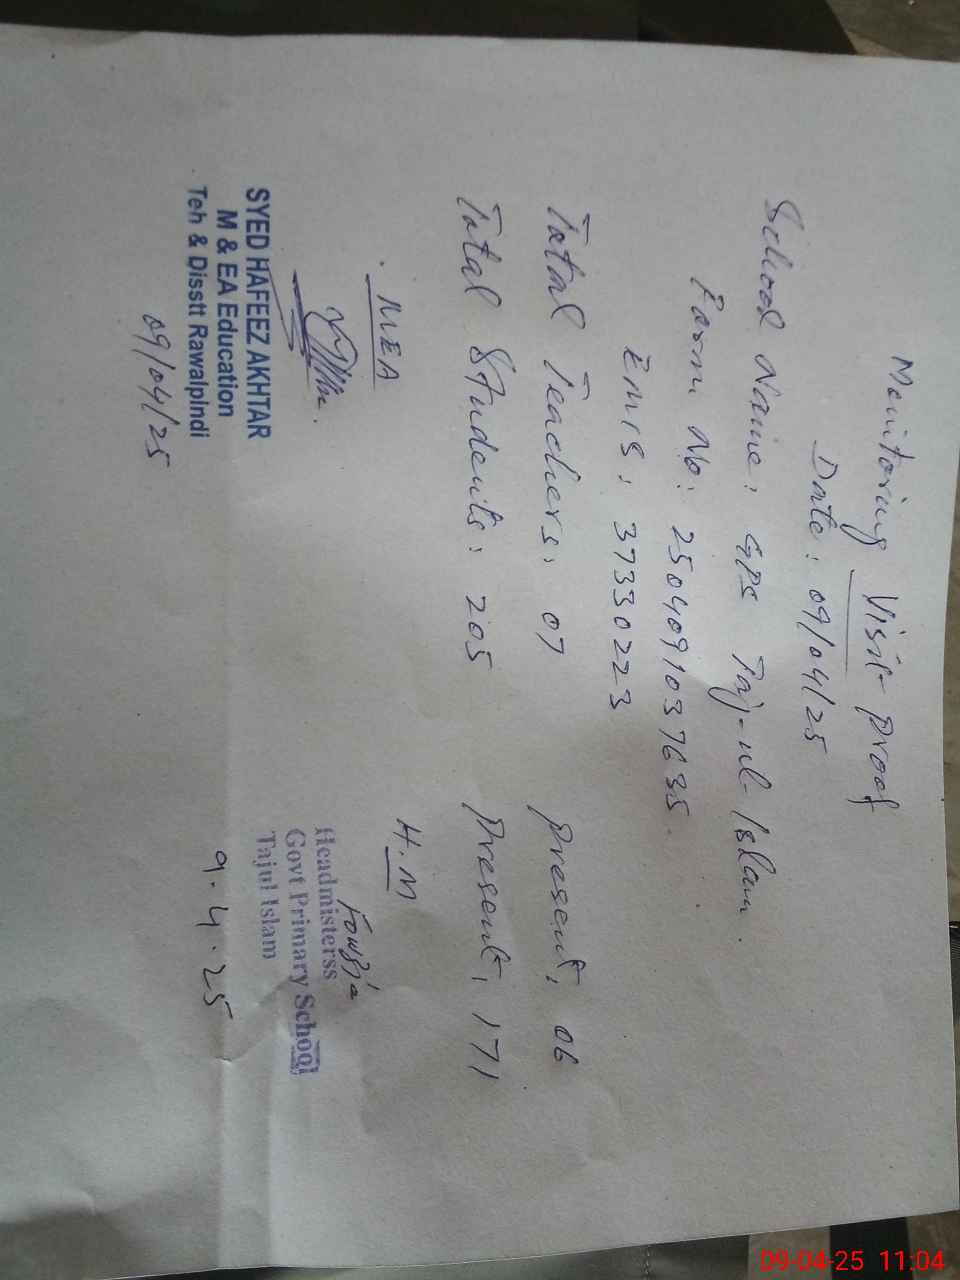 Monitoring Visit Proof
Date: 09/04/25
School Name: GPS Taj-ul-Islam.
Form No: 2504091037635.
Emis: 37330223
Total Teachers: 07 Present: 06
Total Students: 205 Present: 171
MEA H.M
Fowzia
SYED HAFEEZ AKHTAR
M & EA Education
Teh & Disstt Rawalpindi
09/04/25
Headmisterss
Govt Primary School
Tajul Islam
9.4.25
09-04-25 11:04